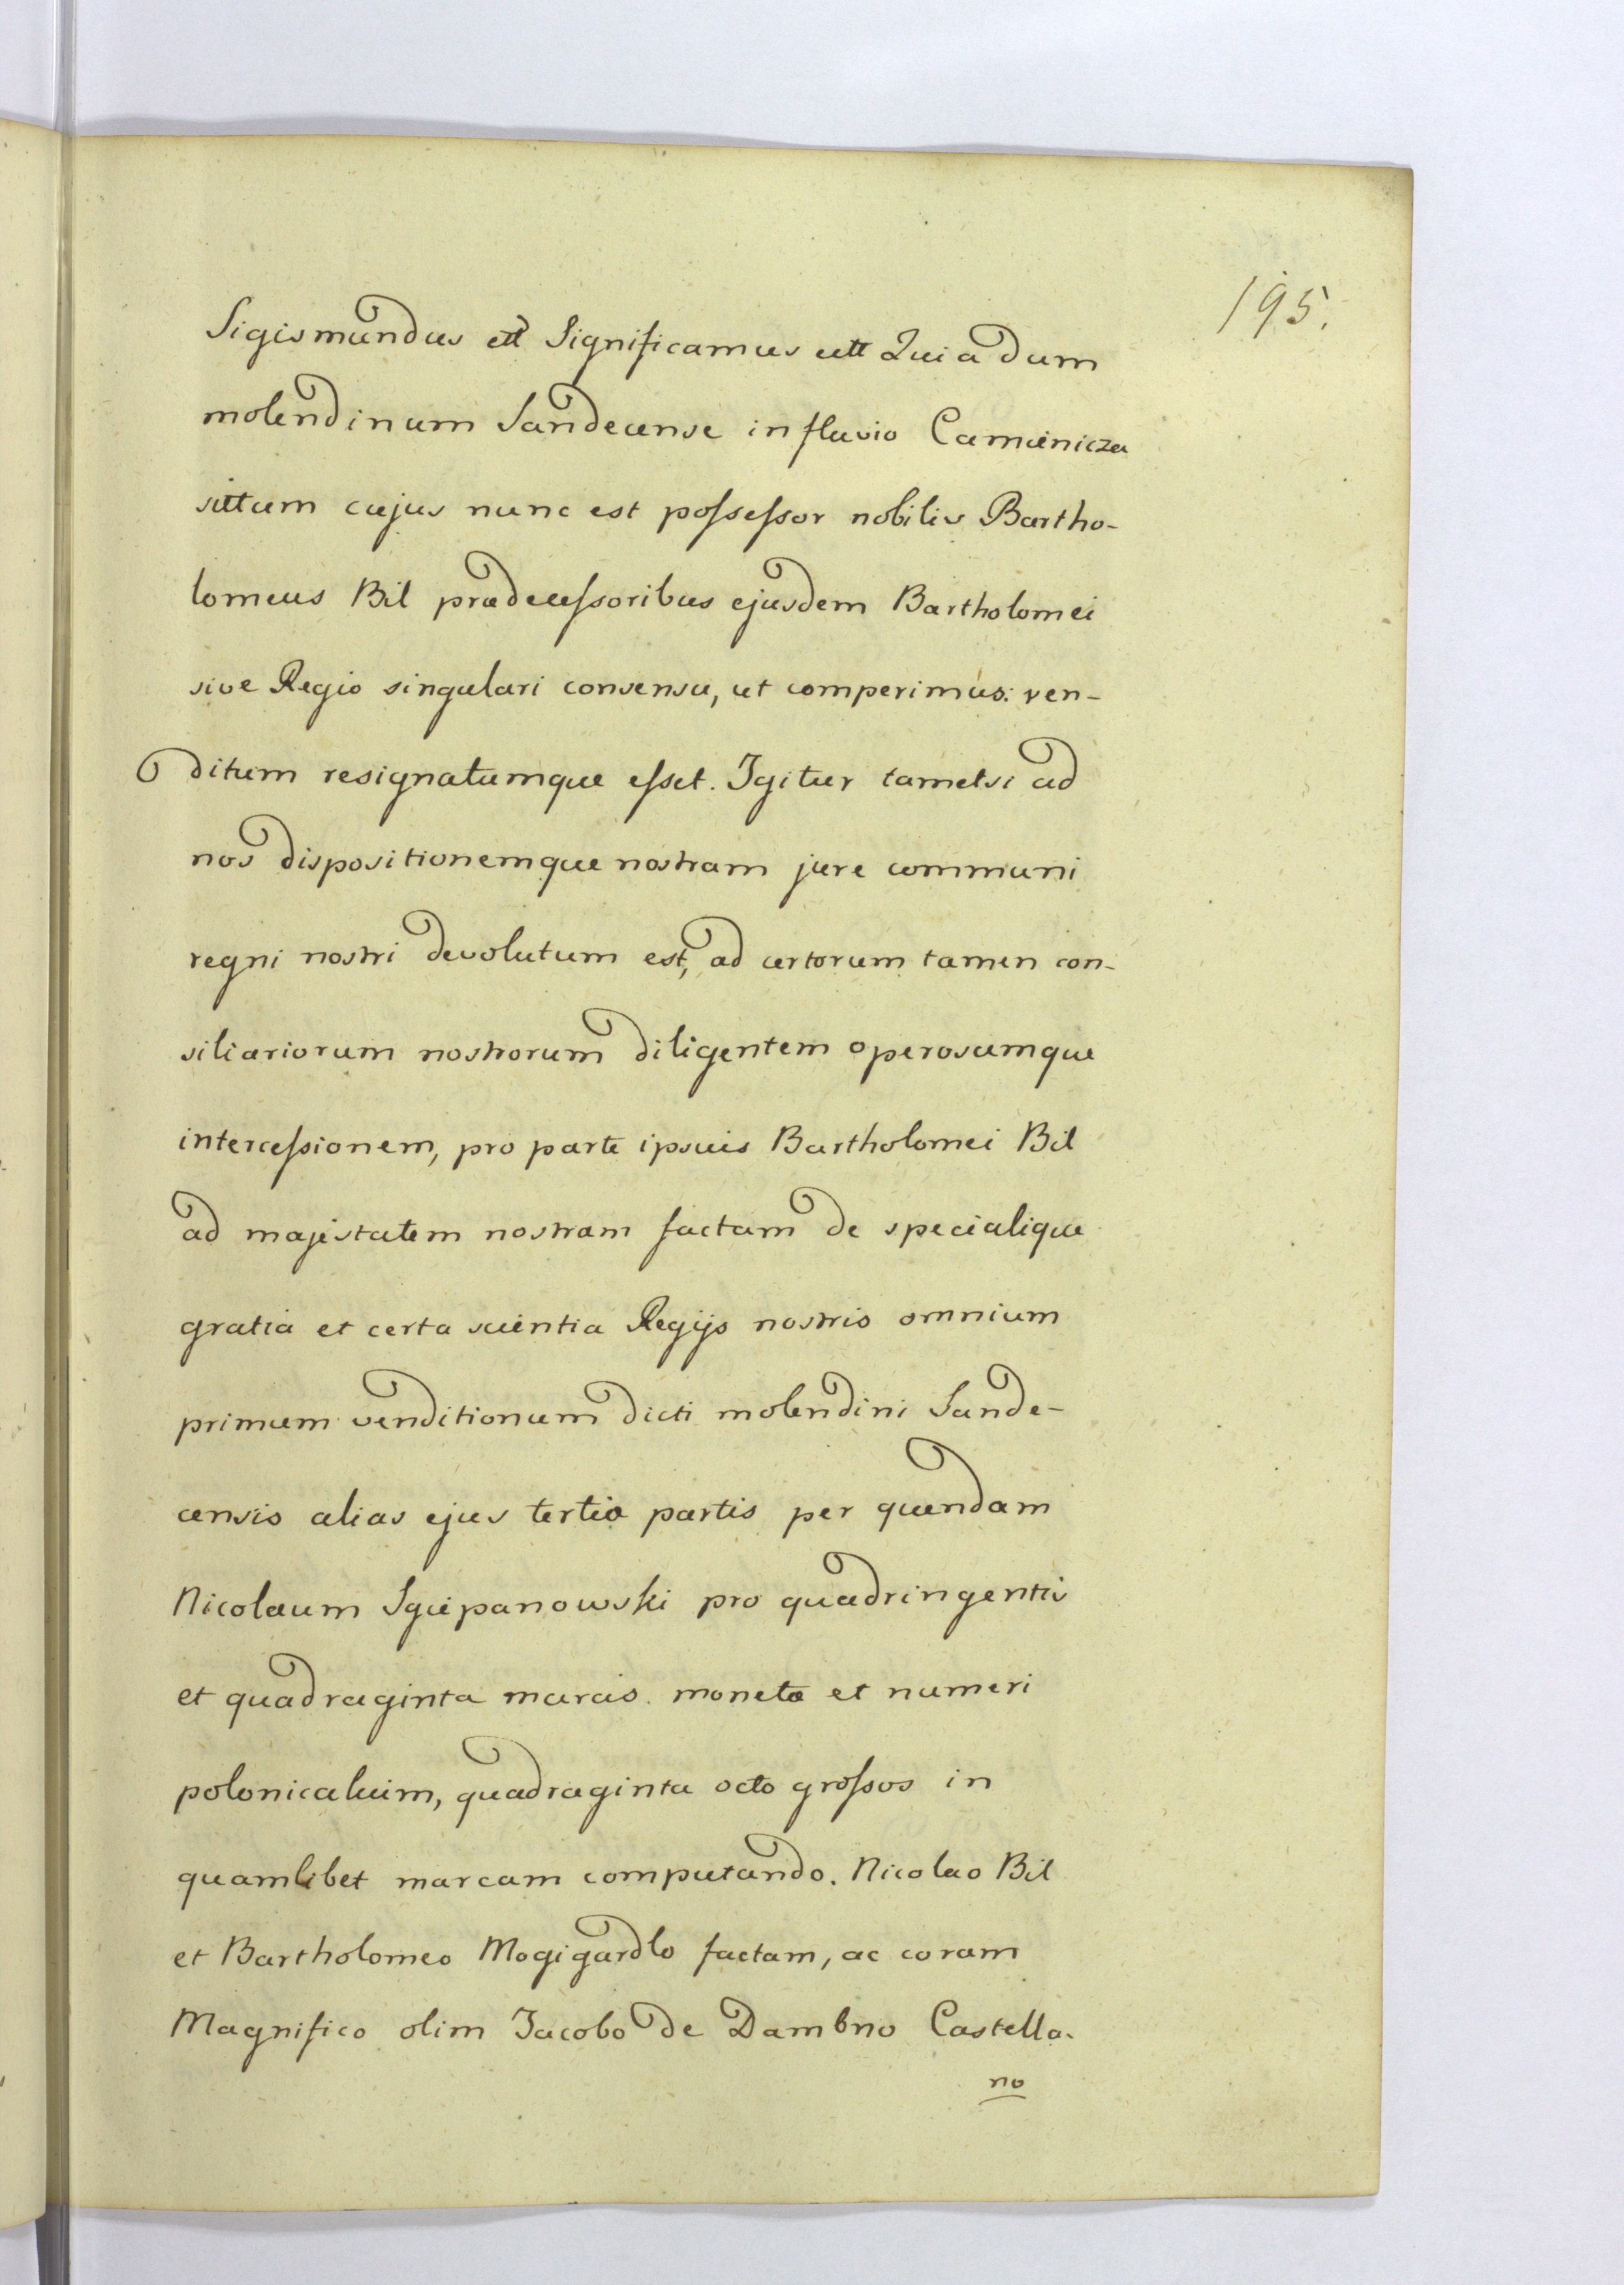 195.
Sigismundus ett Significamus ett Quia dum
molendinum Sandecense in fluvio Camienicza
sittum cujus nunc est possessor nobilis Bartho-
lomeus Bil prædecessoribus ejusdem Bartholomei
sive Regio singulari consensu, ut comperimus: ven-
ditum resignatumque esset. Igitur tametsi ad
nos dispositionemque nostram jure communi
regni nostri devolutum est, ad certorum tamen con-
siliariorum nostrorum diligentem operosamque
intercessionem, pro parte ipsius Bartholomei Bil
ad majestatem nostram factam de specialique
gratia et certa scientia Regijs nostris omnium
primum venditionum dicti molendini Sande-
censis alias ejus tertiæ partis per quendam
Nicolaum Sgiepanowski pro quadringentis
et quadraginta marcis monetæ et numeri
polonicalium, quadraginta octo grossos in
quamlibet marcam computando. Nicolao Bil
et Bartholomeo Mogigardlo factam, ac coram
Magnifico olim Jacobo de Dambno Castella-
no